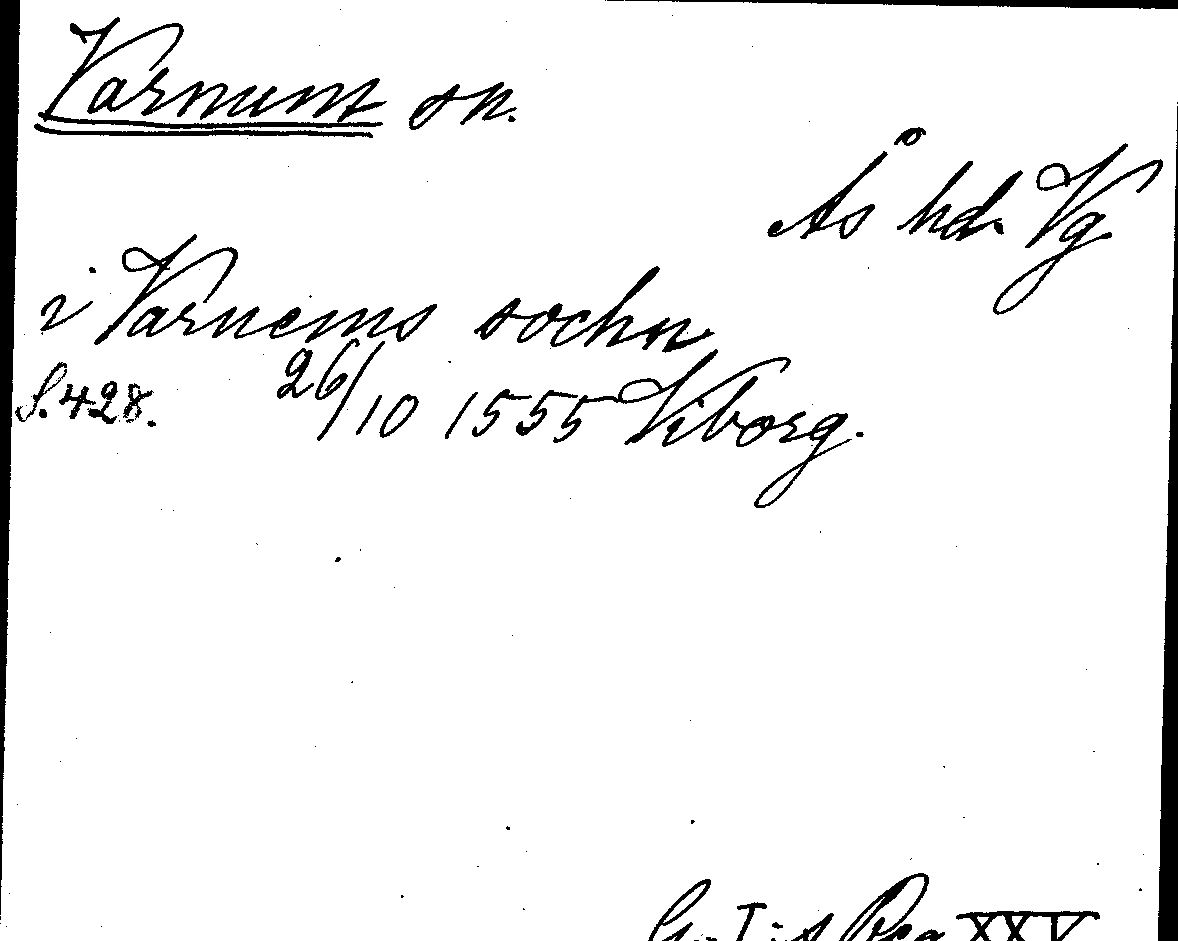 Varnum sn.
Ås hd. Vg
i Varnems sochn
S. 428. 26/10 1555 Viborg.
G. I:s Reg XXV